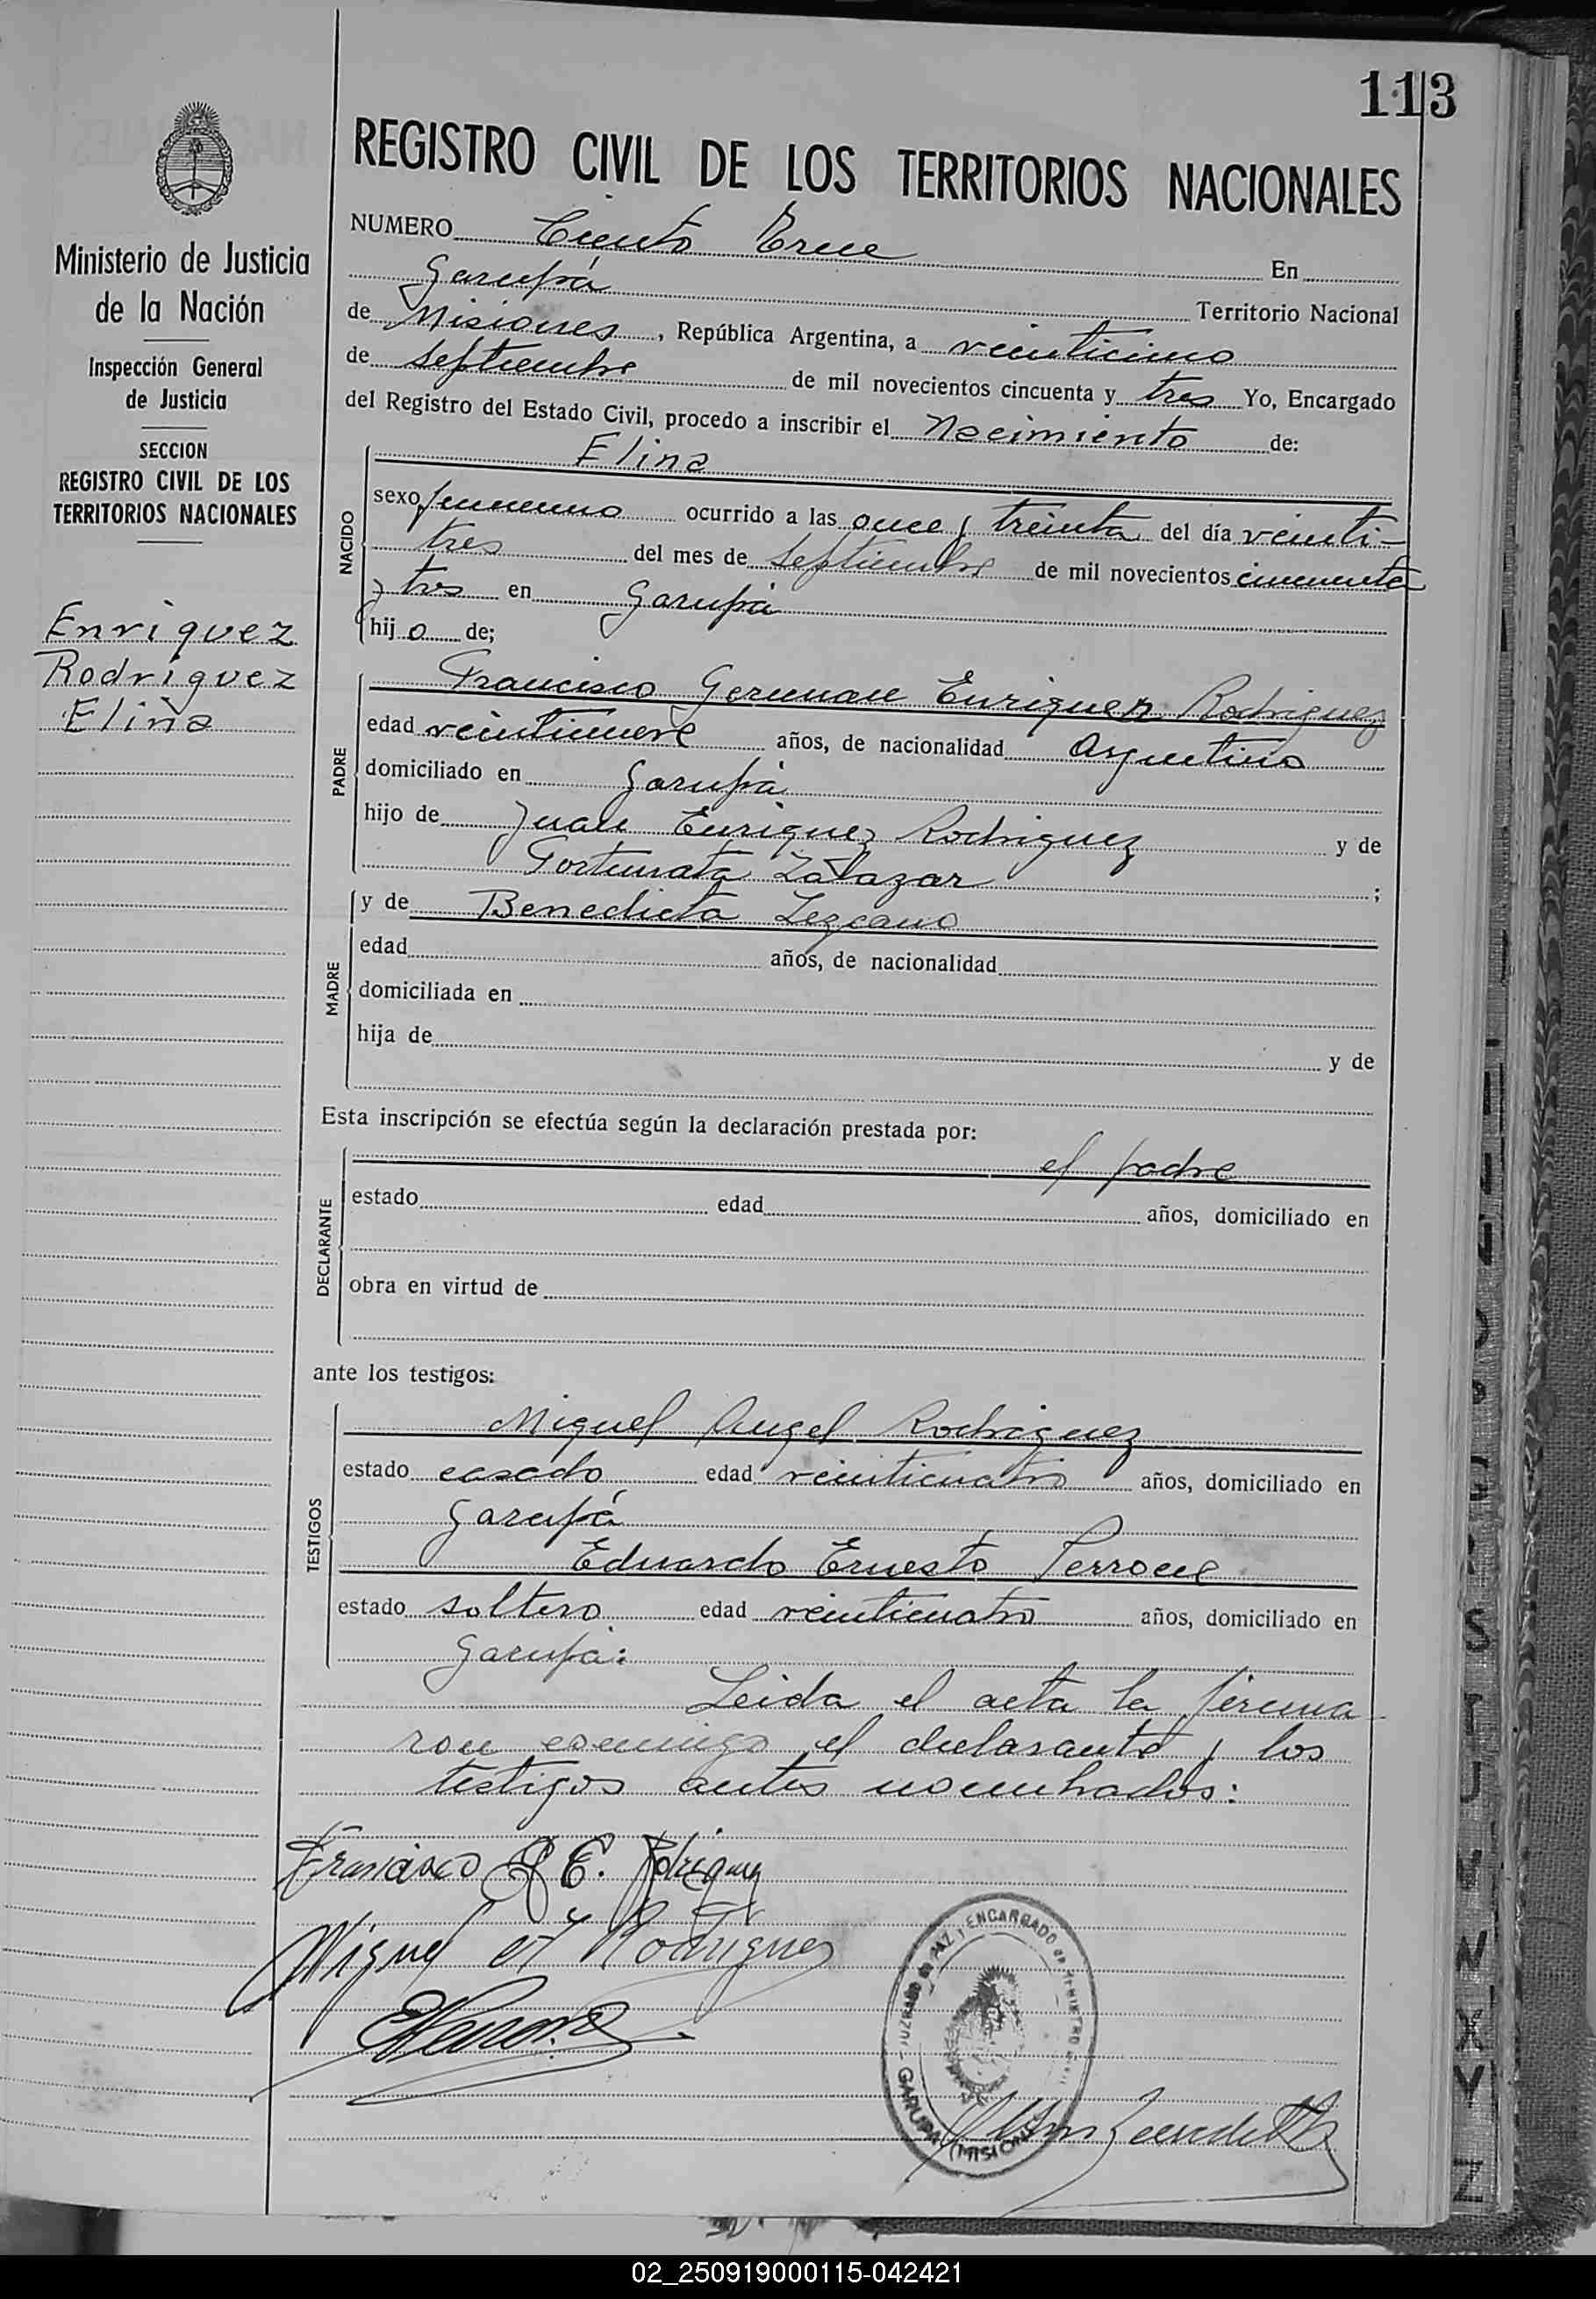 113
REGISTRO CIVIL DE LOS TERRITORIOS NACIONALES
Ministerio de Justicia
de la Nación
Inspección General
de Justicia
SECCION
REGISTRO CIVIL DE LOS
TERRITORIOS NACIONALES
Enriquez
Rodriguez
Elina
NUMERO Ciento Trece En
Garupá Territorio Nacional
de Misiones, República Argentina, a veinticinco
de Septiembre de mil novecientos cincuenta y tres Yo, Encargado
del Registro del Estado Civil, procedo a inscribir el Nacimiento de:
NACIDO
Elina
sexo femenino ocurrido a las once y treinta del día veinti-
tres del mes de Septiembre de mil novecientos cincuenta
y tres en Garupá
hij o de;
PADRE
Francisco German Enriquez Rodriguez
edad veintinueve años, de nacionalidad Argentino
domiciliado en Garupá
hijo de Juan Enriquez Rodriguez y de
Fortunata Zalazar ;
MADRE
y de Benedicta Lezcano
edad años, de nacionalidad
domiciliada en
hija de y de
Esta inscripción se efectúa según la declaración prestada por:
DECLARANTE
el padre
estado edad años, domiciliado en
obra en virtud de
ante los testigos:
TESTIGOS
Miguel Angel Rodriguez
estado casado edad veinticuatro años, domiciliado en
Garupá
Eduardo Ernesto Perrone
estado soltero edad veinticuatro años, domiciliado en
Garupá:
Leida el acta la firma-
ron conmigo el declarante y los
testigos antes nombrados:
Francisco G E. Rodriguez
Miguel A Rodriguez
JUZGADO DE PAZ Y ENCARGADO
GARUPA (MISIONES)
02_250919000115-042421